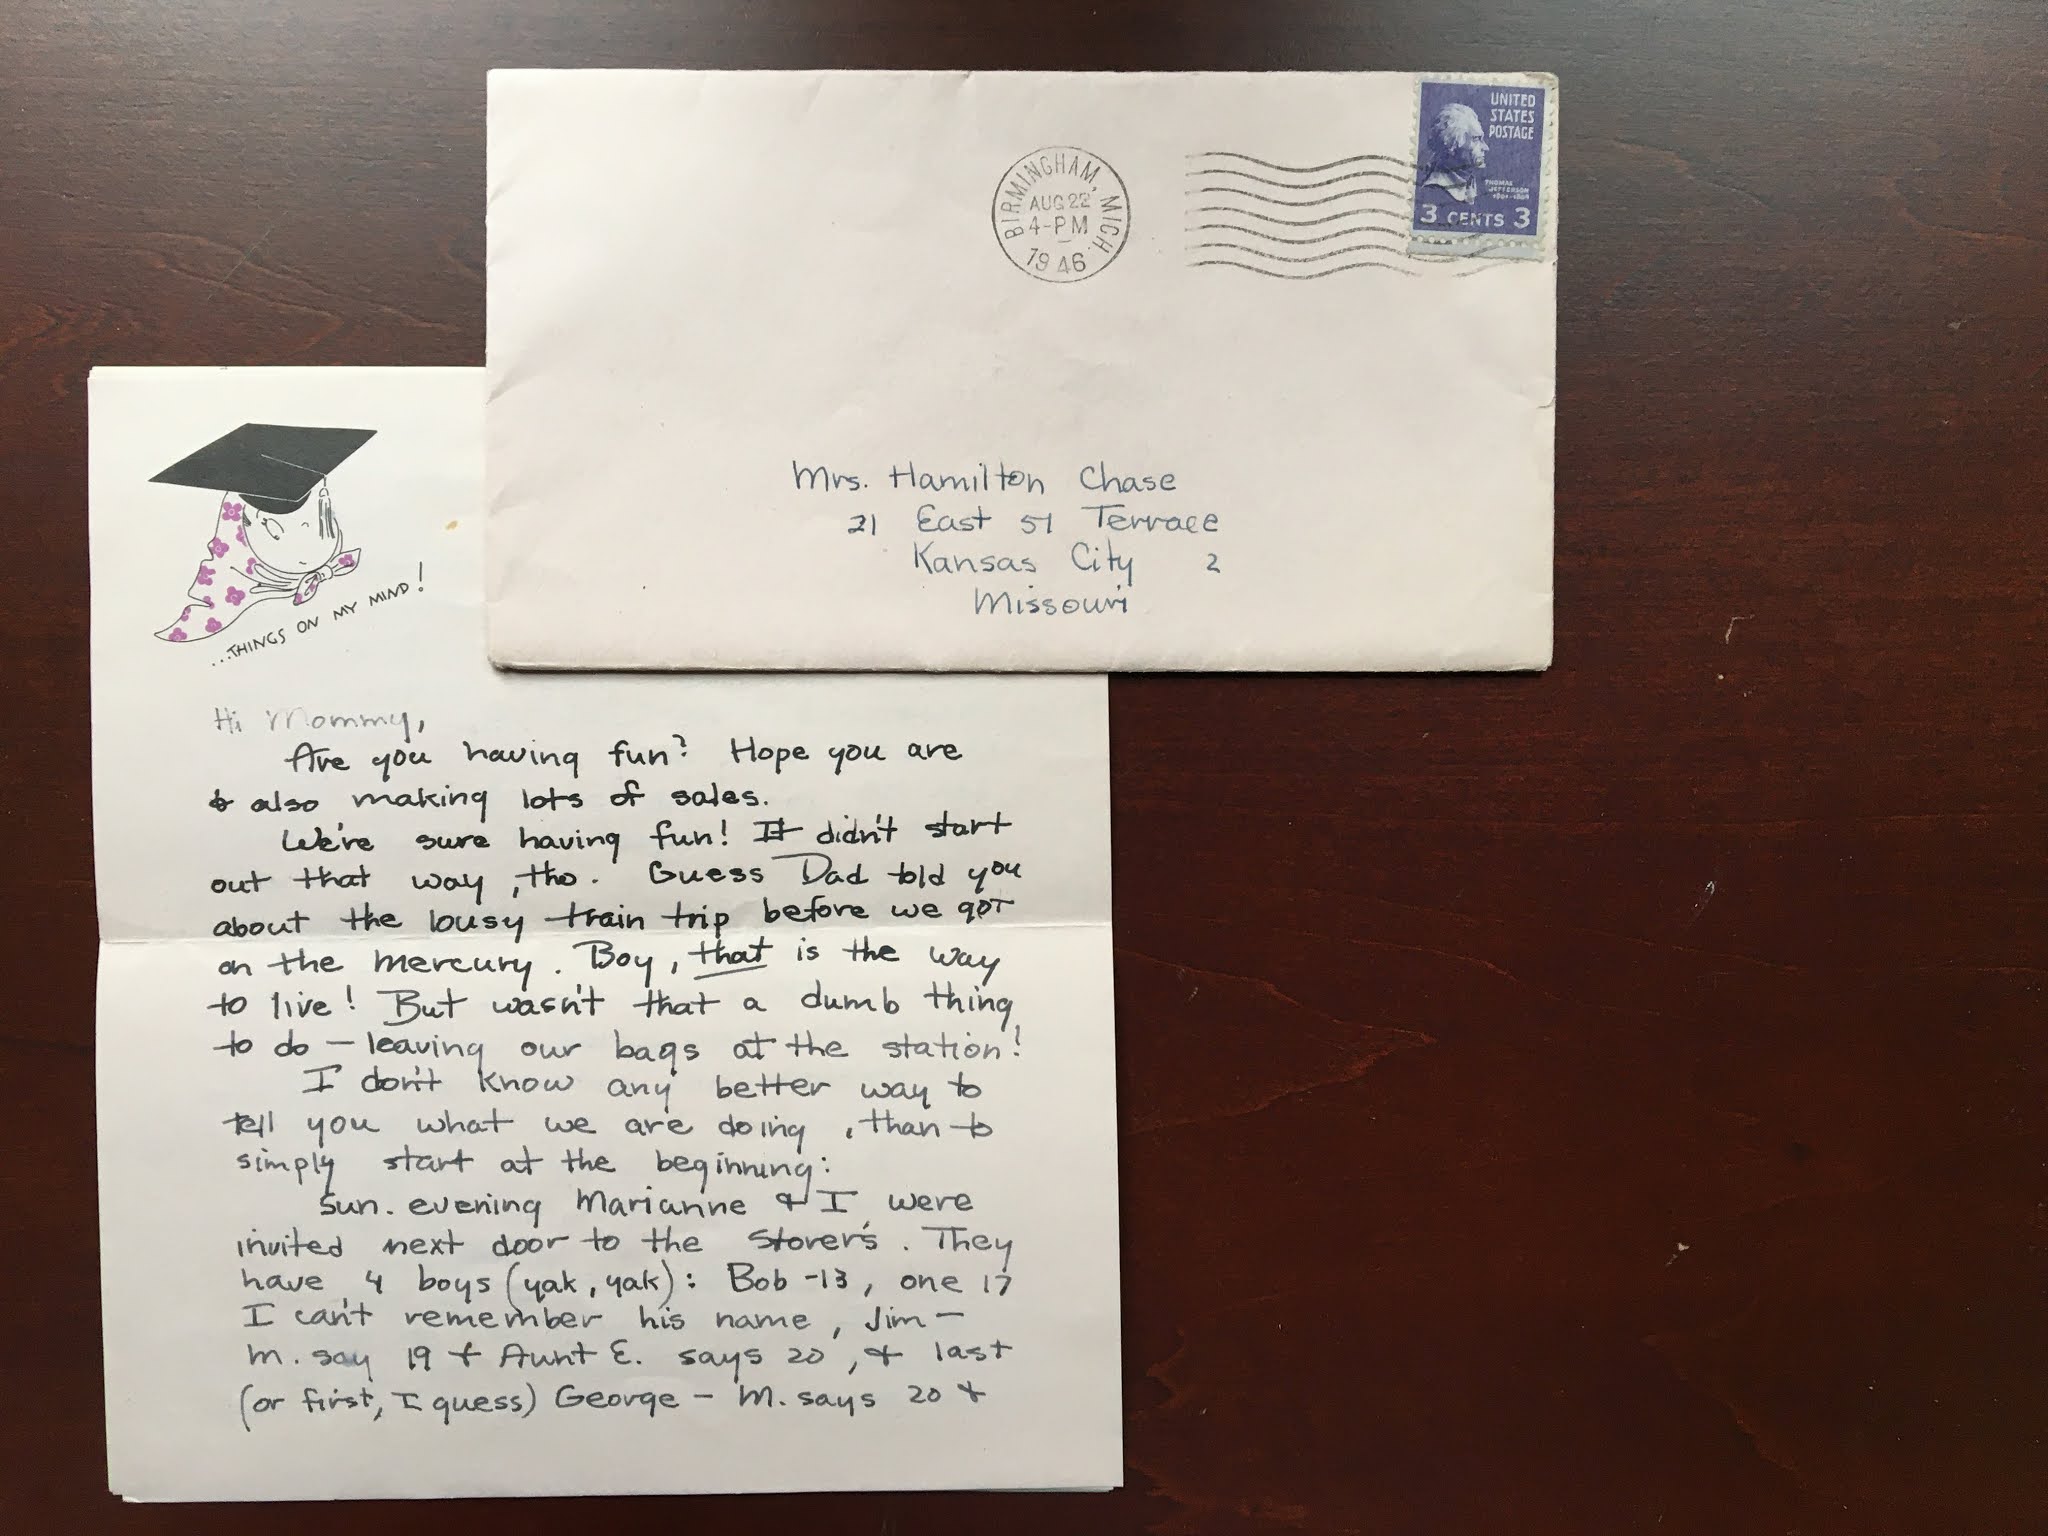 UNITED
STATES
POSTAGE
THOMAS
JEFFERSON
1801-1809
3 CENTS 3
BIRMINGHAM, MICH.
AUG 22
4-PM
1946
Mrs. Hamilton Chase
21 East 51 Terrace
Kansas City 2
Missouri
...THINGS ON MY MIND!
Hi Mommy,
Are you having fun? Hope you are
& also making lots of sales.
We're sure having fun! It didn't start
out that way, tho. Guess Dad told you
about the lousy train trip before we got
on the Mercury. Boy, that is the way
to live! But wasn't that a dumb thing
to do — leaving our bags at the station!
I don't know any better way to
tell you what we are doing, than to
simply start at the beginning:
Sun. evening Marianne & I were
invited next door to the Storer's. They
have 4 boys (yak, yak): Bob -13, one 17
I can't remember his name, Jim —
M. say 19 & Aunt E. says 20, & last
(or first, I guess) George — M. says 20 &